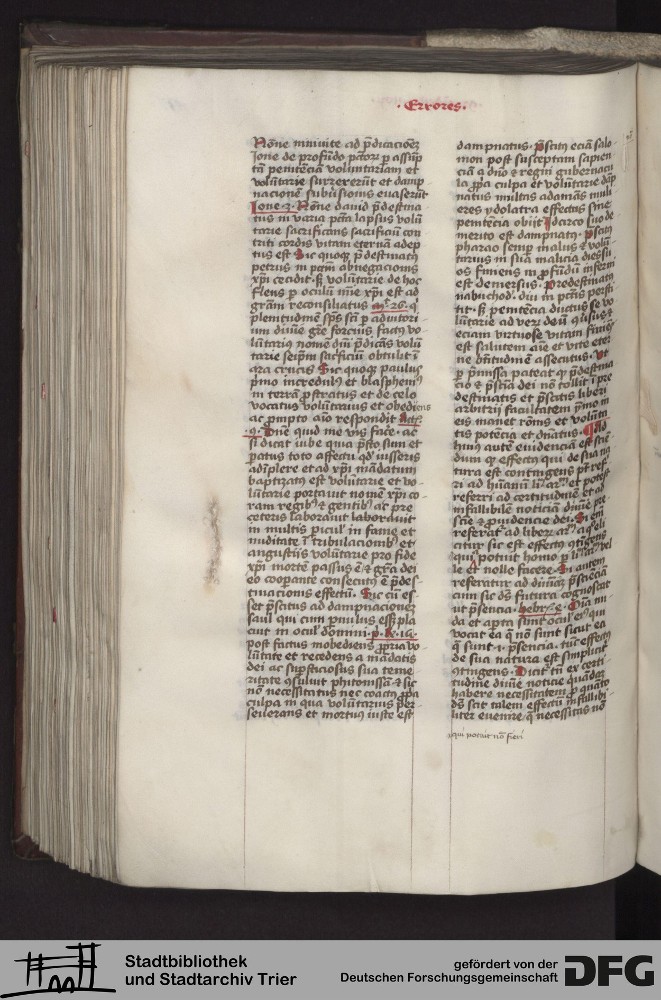 · Errores ·
Nōne ninivite ad p̄dicacionēȝ
Ione de profūdo pc̄torꝫ ꝑ assūp
tā penitēciā voluntariam et
volūtarie surrexerūt et damp
nacionē subūsionis evaserūt
Ione 2. Nōne david p̄destina
tus in varia pc̄ta lapsus volū
tarie sacrificans sacrificiū con
triti cordis vitam eternā adep
tus est Sic quoqꝫ p̄destinatꝰ
petrus in pc̄m abnegacionis
xp̄i cecidit · sꝫ voluntarie de hoc
flens ꝑ oculū mīe xp̄i est ad
gr̄am reconsiliatus mͭ 26. qͥ
plenitudinē sp̄s sc̄i ꝑ adiutori
um divīe gr̄e forcius factꝰ vo
luntariꝰ nomē dn̄i p̄dicās volū
tarie seip̄m sacͥficiū obtulit ī
ara crucis Sic quoqꝫ paulus
pͥmo incredulꝰ et blasphemꝰ
in terrā ꝓstratus et de celo
vocatus volūtarius et obediens
ac ꝓmpto aīo respondit Actꝫ
.9. Dn̄e quid me vis face · ac
si dicat iube quia p̄sto sum et
ꝑatus toto affectu qd̓ iusseris
adīplere et ad xp̄i mādatum
baptizatꝰ est volūtarie et vo
lūtarie portavit nomē xp̄i co
ram regibꝰ ⁊ gentibꝰ ac pre
ceteris laboravit laboravit
in multis piculꝭ in fame et
nuditate ī tribulacionibꝰ et
angustijs volūtarie pro fide
xp̄i mortē passus ē ⁊ gr̄a dei
eo cooperante consecutꝰ ē p̄des
tinacionis effectū · Sic cū es
set p̄scitus ad dampnacionēȝ
saul qui cum pͥmulus eēt pla
cuit in oculꝭ domini · p. R. 15.
post factus inobediens ꝓpria vo
lūtate et recedens a mādatis
dei ac suꝑsticiosus sua teme
ritate ꝯsuluit phitonissā ⁊ sic
nō necessitatus nec coactꝰ ꝓpͥa
culpa in qua volūtarius per
severans et mortuꝰ iuste est
dampnatus · p̄scitꝰ eciā salo
mon post susceptam sapien
ciā a dn̄o ⁊ regni gubernacu
la ꝓpͥa culpa et volūtarie dāp
natus multas adamās muli
eres ydolatra effectus sine
penitēcia obijt Idcirco suo de
merito est dampnatꝰ · p̄scitꝰ
pharao semꝑ malus ⁊ volū
tarius in sua malicia dies su
os finiens in ꝓfūdū inferni
est demersus · predestinatꝰ
nabuchod. diu in pc̄tis persti
tit · sꝫ penitēcia ductus se vo
lūtarie ad verū deū ꝯūsus ⁊
eciam virtuose vitam finiēs
est salutem aīe et vite eter
ne bn̄tudinē assecutus · Ut
ꝑ p̄missa pateat qꝫ p̄destina
cio ⁊ p̄sciā dei nō tollit ī pre
destinatis et p̄scitis liberi
arbitrii facultatem ymo in
eis manet rōnis et volūta
tis potēcia et dn̄atus · Ad
huiꝰ autē evidenciā est scī
dum qꝫ effectꝰ qui de sua na
tura est contingens pt̄ refer
ri ad hūanū liꝫ arͫ et potest
referri ad certitudinē et ad
infallibilē noticiā divīe pre
sciē ⁊ ꝓvidencie dei · Si eni
referat̄ ad liberꝫ arͫ a qͦ eli
citur sic est effectꝰ ꝯtīgens
qui potuit homo ꝑ liꝫ arͫ vel
le et nolle facere · Si autem
referatur ad divinā p̄sciēciā
cum sic ds̄ futura cognoscat
ut p̄sencia · hebreꝫ 4. Oīa nu
da et apta sunt oculꝭ eiꝰ qui
vocat ea q̄ nō sunt sicut ea
q̄ sunt · i · p̄sencia · tūc effectꝰ
de sua natura est simplicit̓
ꝯtingens · Dicit̓ tn̄ ex certi
tudine divīe noticie quādaȝ
habere necessitatem ꝓ quāto
ds̄ scit talem effectū infallibi
liter evenire · q̄ necessitas nō
qui potuit nō fieri
Stadtbibliothek
und Stadtarchiv Trier
gefördert von der
Deutschen Forschungsgemeinschaft
DFG